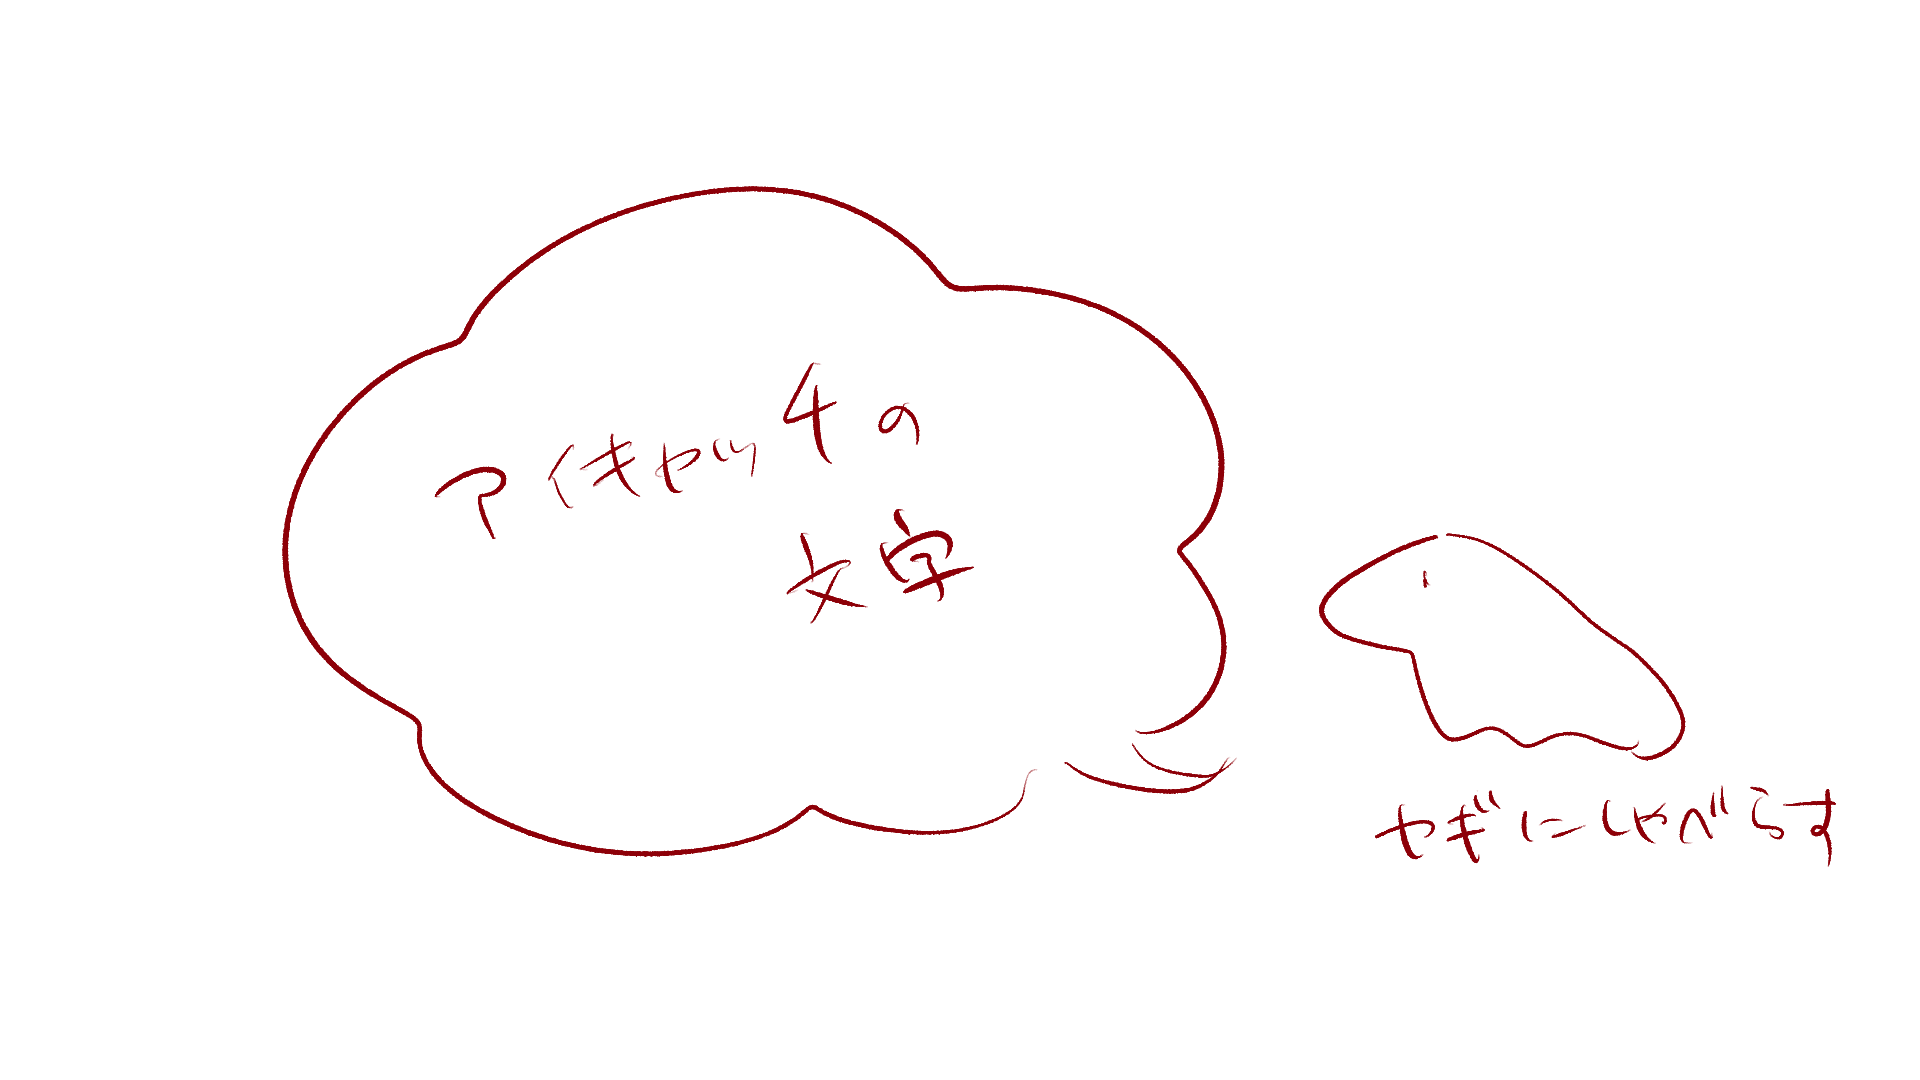 アイキャッチの
文字
ヤギにしゃべらす